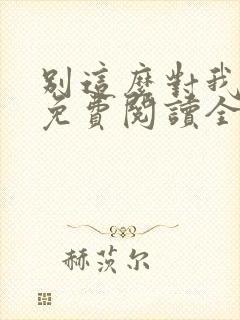 別這麼對我
免費閱讀全
赫茨尔